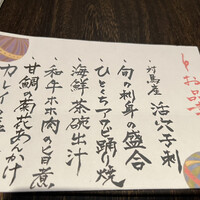 お品書
対馬産 活穴子刺
旬の刺身の盛合
ひとくちアワビ踊り焼
海鮮茶碗出汁
和牛ホホ肉のと目煮
甘鯛の菊花あんかけ
カレイ